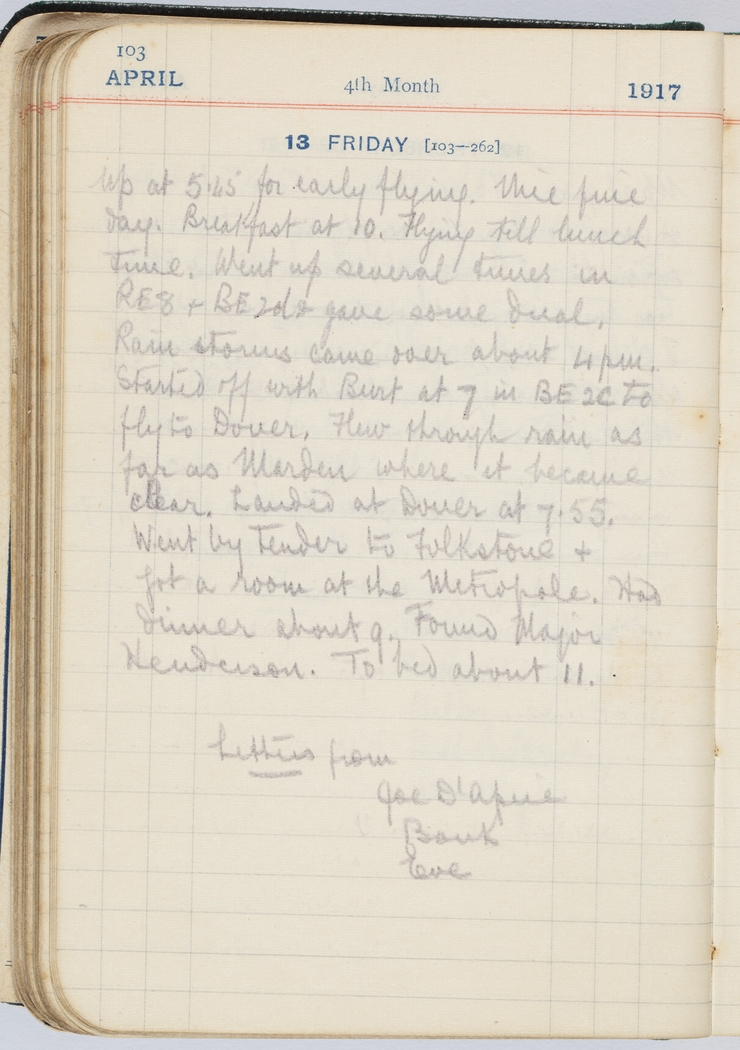 103
APRIL
4th Month
1917
13 FRIDAY [103—262]
Up at 5.45 for early flying. Nice fine
day. Breakfast at 10. Flying till lunch
time. Went up several times in
RE8 + BE2d & gave some dual.
Rain storms came over about 4 pm.
Started off with Burt at 7 in BE2C to
fly to Dover. Flew through rain as
far as Marden where it became
clear. Landed at Dover at 7.55.
Went by Tender to Folkstone +
got a room at the Metropole. Had
dinner about 9. Found Major
Henderson. To bed about 11.
Letters from
Joe D'Apice
Bank
Eve